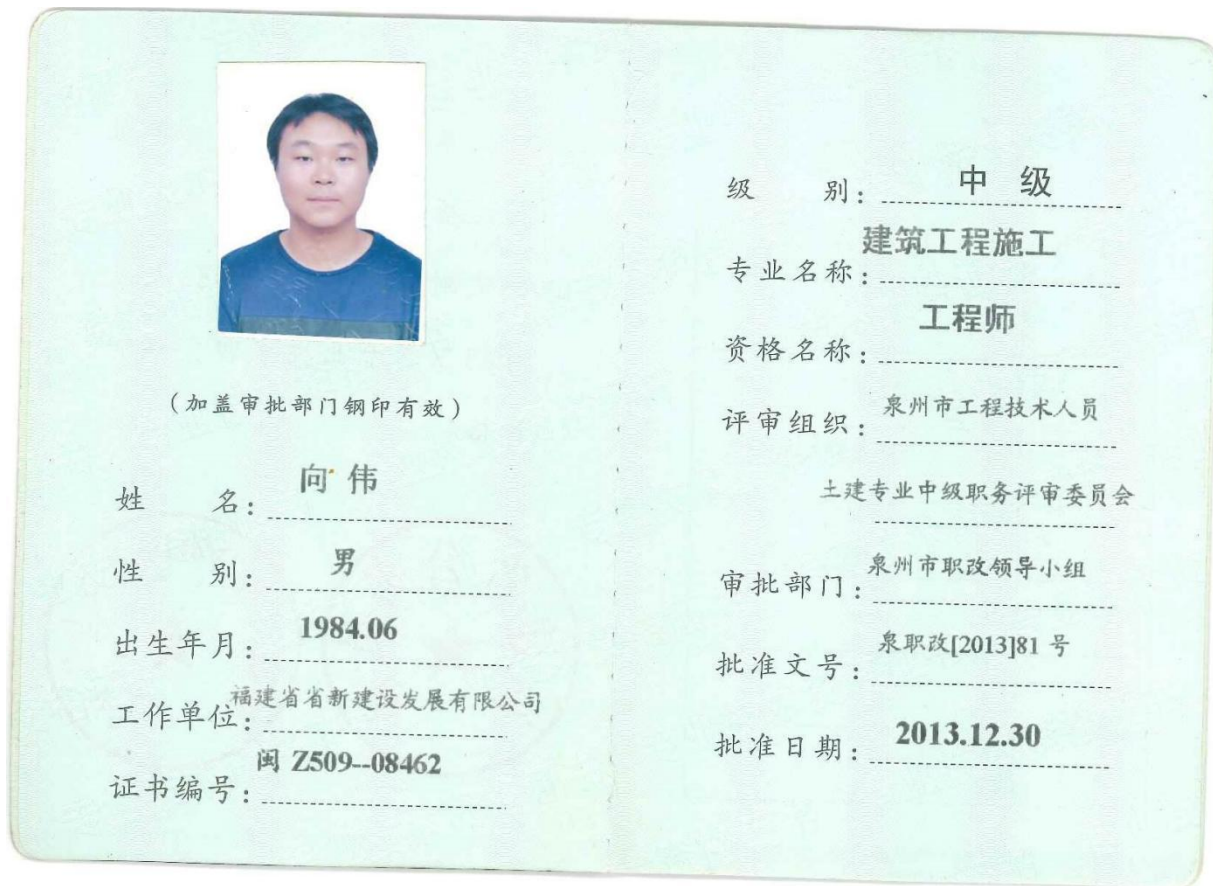 (加盖审批部门钢印有效)
姓 名: 向 伟
性 别: 男
出生年月: 1984.06
工作单位: 福建省省新建设发展有限公司
证书编号: 闽 Z509--08462
级 别: 中 级
专业名称: 建筑工程施工
资格名称: 工程师
评审组织: 泉州市工程技术人员
土建专业中级职务评审委员会
审批部门: 泉州市职改领导小组
批准文号: 泉职改[2013]81 号
批准日期: 2013.12.30